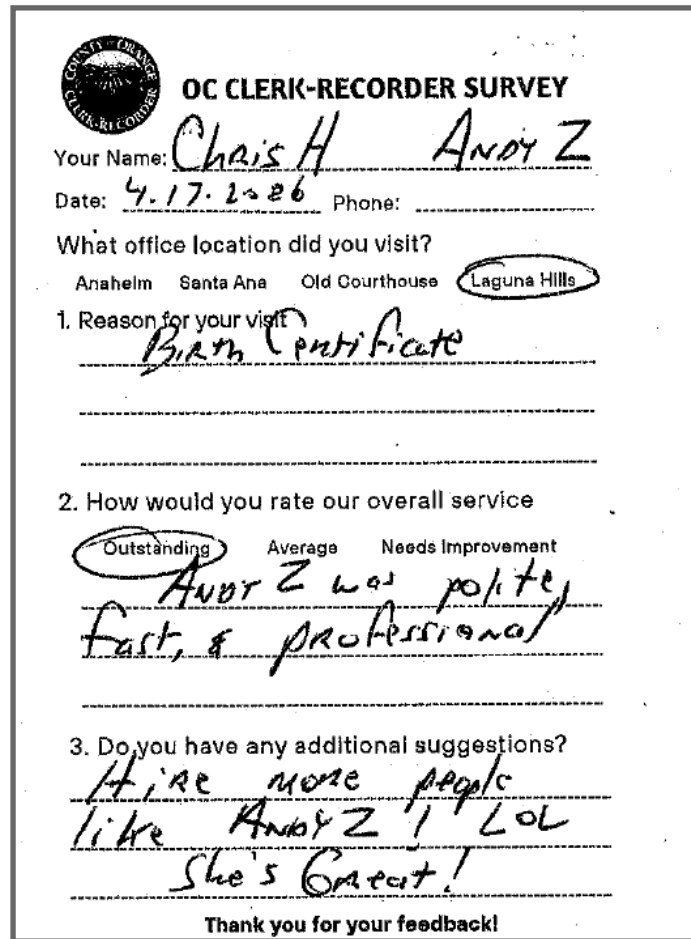 COUNTY OF ORANGE
CLERK-RECORDER
OC CLERK-RECORDER SURVEY
Your Name: Chris H Andy Z
Date: 4.17.2026 Phone:
What office location did you visit?
Anaheim Santa Ana Old Courthouse Laguna Hills
1. Reason for your visit
Birth Certificate
2. How would you rate our overall service
Outstanding Average Needs Improvement
Andy Z was polite,
fast, & professional
3. Do you have any additional suggestions?
Hire more people
like Andy Z! LOL
She's Great!
Thank you for your feedback!